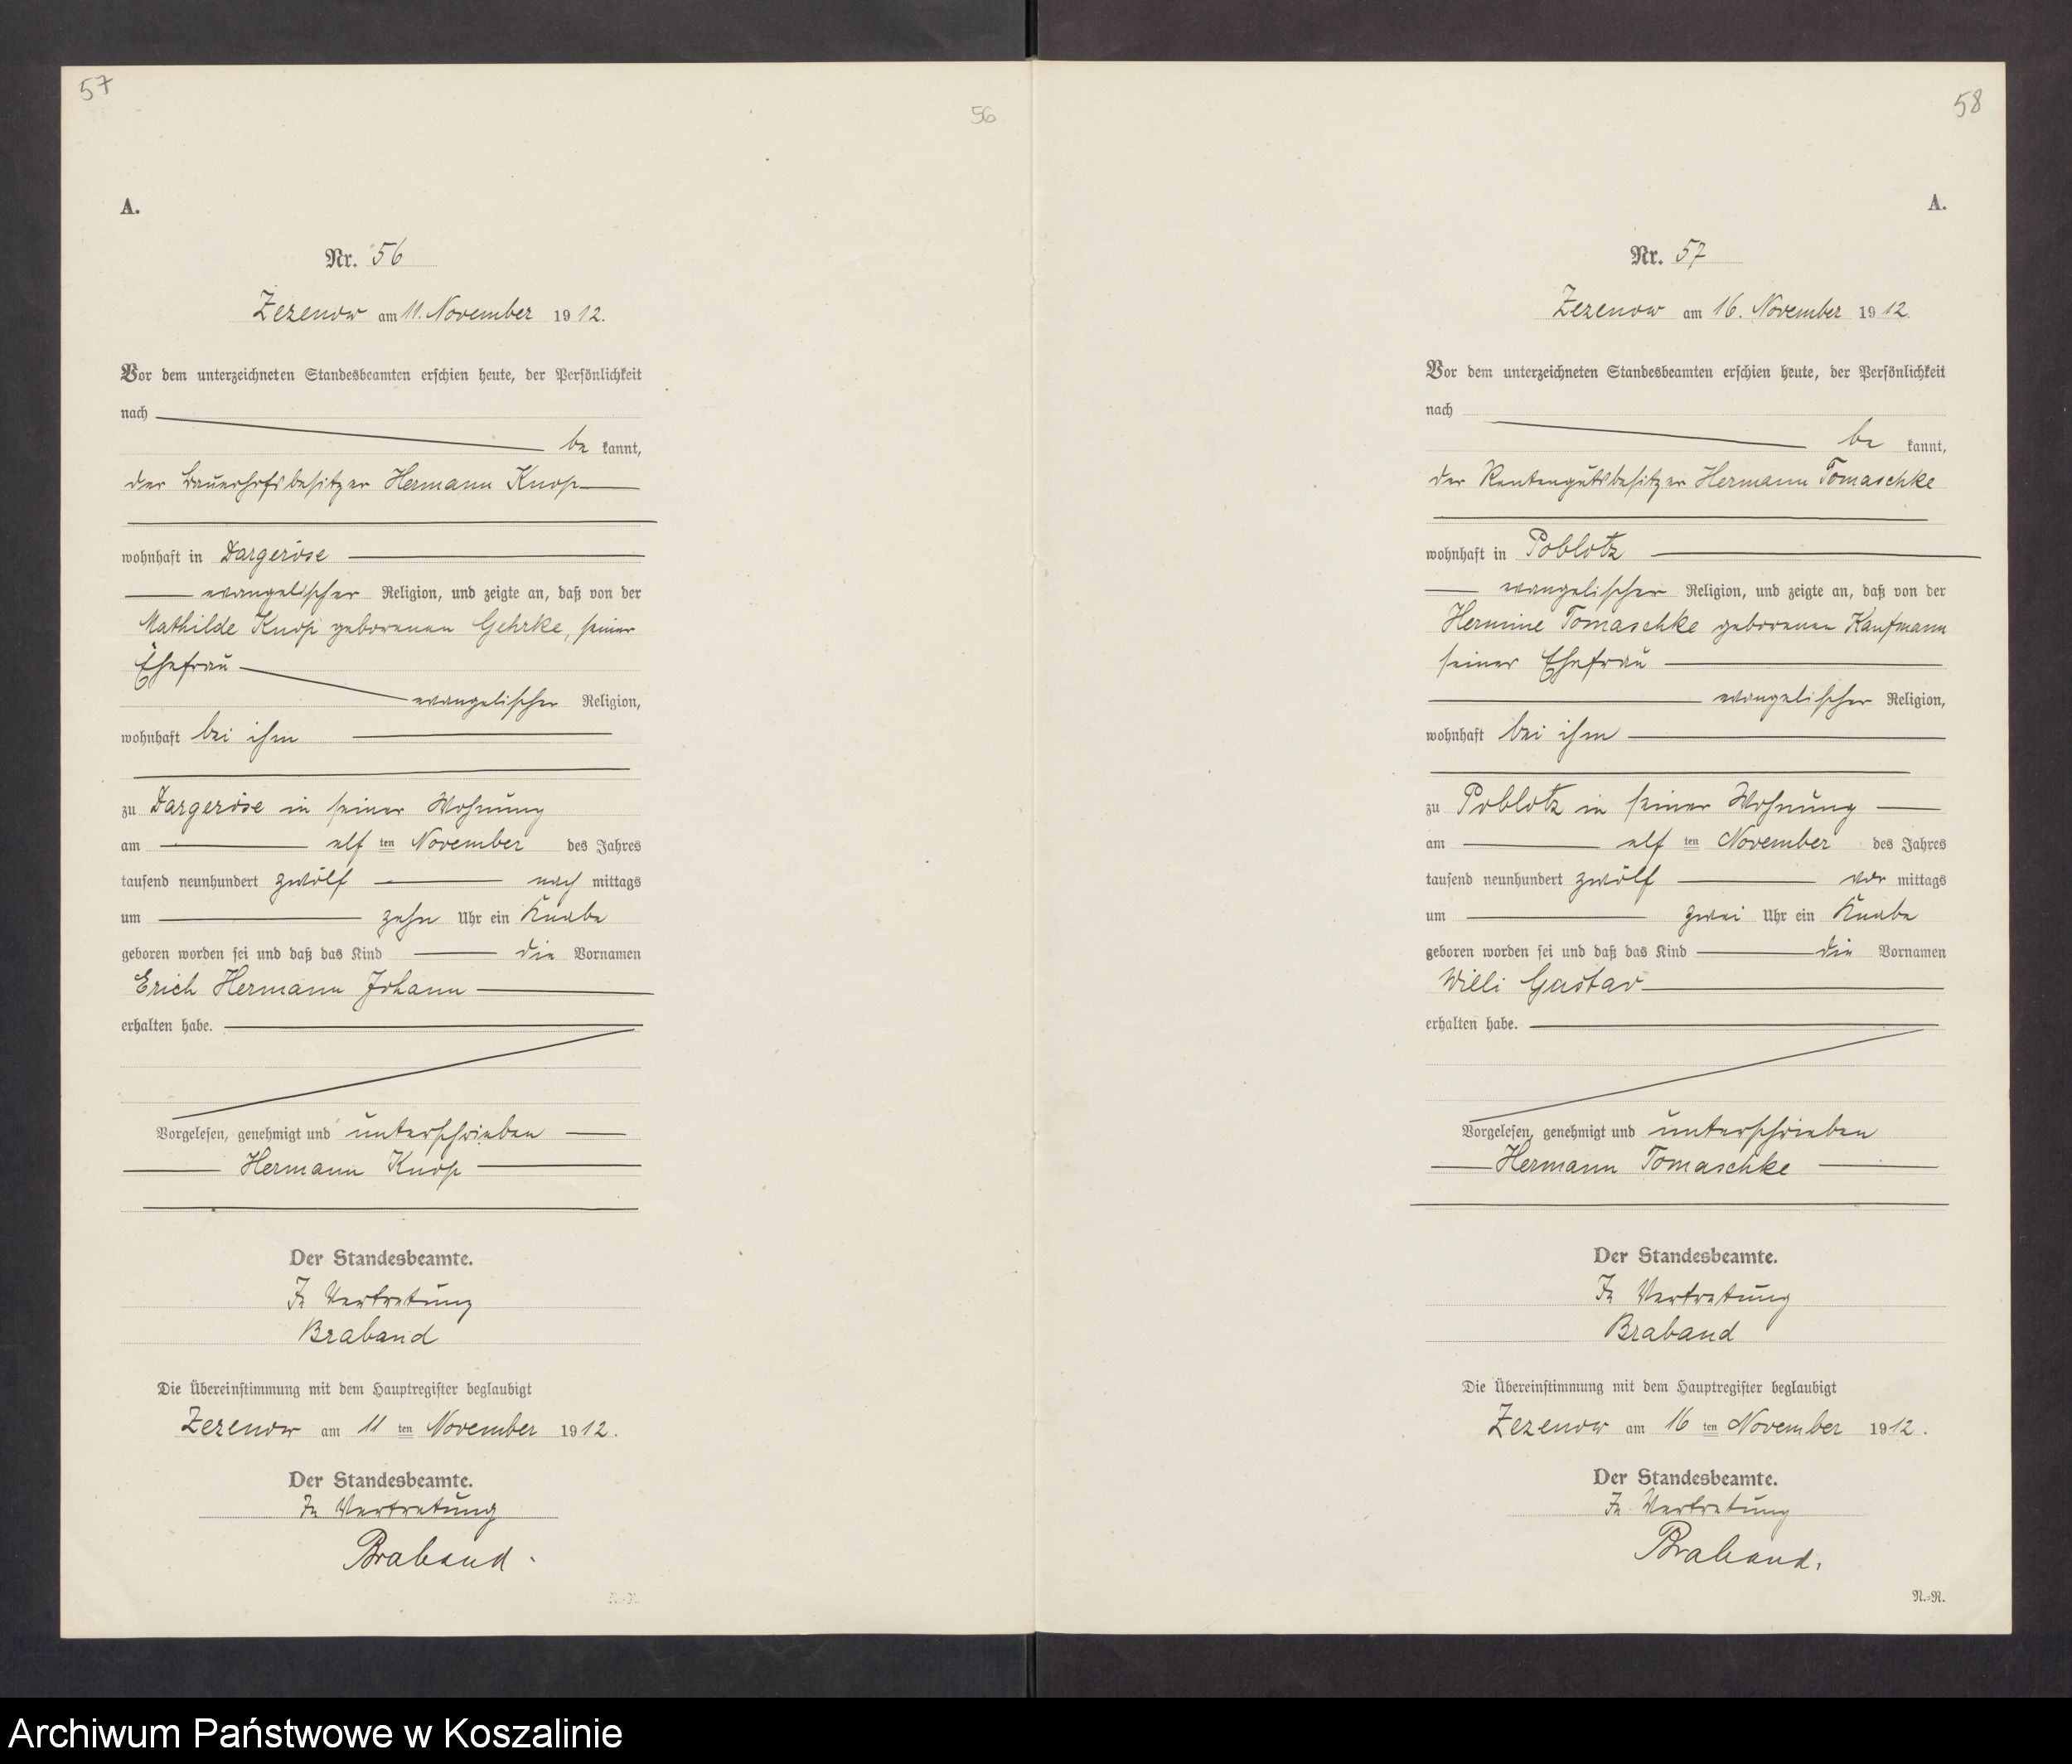 57
56
A.
Nr. 56
Zezenow am 11. November 1912.
Vor dem unterzeichneten Standesbeamten erschien heute, der Persönlichkeit
nach
be kannt,
der Bauerhofsbesitzer Hermann Knop
wohnhaft in Dargeröse
evangelischer Religion, und zeigte an, daß von der
Mathilde Knop geborenen Gehrke, seiner
Ehefrau
evangelischer Religion,
wohnhaft bei ihm
zu Dargeröse in seiner Wohnung
am elf ten November des Jahres
tausend neunhundert zwölf nach mittags
um zehn Uhr ein Knabe
geboren worden sei und daß das Kind die Vornamen
Erich Hermann Johann
erhalten habe.
Vorgelesen, genehmigt und unterschrieben
Hermann Knop
Der Standesbeamte.
In Vertretung
Braband
Die Übereinstimmung mit dem Hauptregister beglaubigt
Zezenow am 11 ten November 1912.
Der Standesbeamte.
In Vertretung
Braband.
58
A.
Nr. 57
Zezenow am 16. November 1912.
Vor dem unterzeichneten Standesbeamten erschien heute, der Persönlichkeit
nach
be kannt,
der Rentengutsbesitzer Hermann Tomaschke
wohnhaft in Poblotz
evangelischer Religion, und zeigte an, daß von der
Hermine Tomaschke geborenen Kaufmann
seiner Ehefrau
evangelischer Religion,
wohnhaft bei ihm
zu Poblotz in seiner Wohnung
am elf ten November des Jahres
tausend neunhundert zwölf vor mittags
um zwei Uhr ein Knabe
geboren worden sei und daß das Kind die Vornamen
Willi Gustav
erhalten habe.
Vorgelesen, genehmigt und unterschrieben
Hermann Tomaschke
Der Standesbeamte.
In Vertretung
Braband
Die Übereinstimmung mit dem Hauptregister beglaubigt
Zezenow am 16 ten November 1912.
Der Standesbeamte.
In Vertretung
Braband.
N.=R.
Archiwum Państwowe w Koszalinie